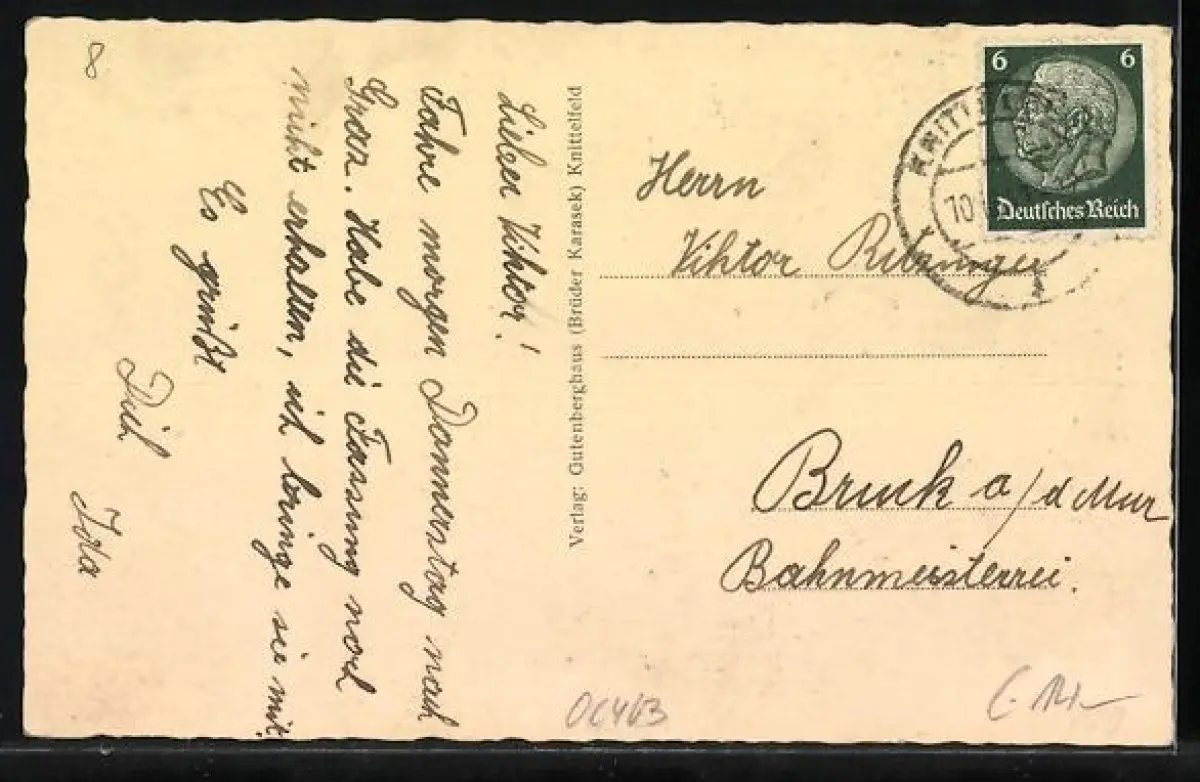 8
Lieber Viktor!
Fahre morgen Donnerstag nach
Graz. Habe die Fassung noch
nicht erhalten, ich bringe sie mit.
Es grüßt
Dich
Ida
Verlag: Gutenberghaus (Brüder Karasek) Knittelfeld
6 6
Deutsches Reich
KNITTELF
10
Herrn
Viktor
Bruck a/d Mur
Bahnmeisterei.